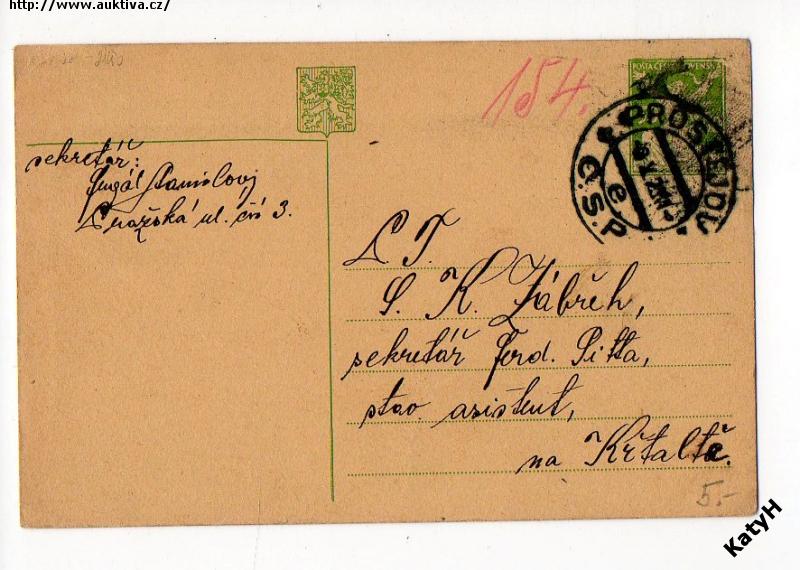 http://www.auktiva.cz/
154.
POSTA ČESKOSLOVENSKÁ
PROSTĚJOV
e
Č.S.P.
sekretář:
Stanislav
Pražská ul. čís 3.
L. T.
S. K. Zábřeh,
sekretář Ferd. Pitta,
stav. asistent,
na
5.-
KatyH